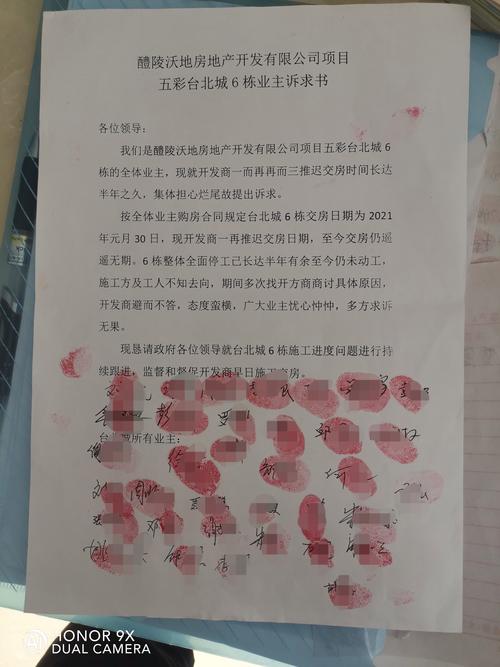 醴陵沃地房地产开发有限公司项目
五彩台北城6栋业主诉求书
各位领导：
我们是醴陵沃地房地产开发有限公司项目五彩台北城 6
栋的全体业主，现就开发商一而再再而三推迟交房时间长达
半年之久，集体担心烂尾故提出诉求。
按全体业主购房合同规定台北城 6 栋交房日期为 2021
年元月 30 日，现开发商一再推迟交房日期，至今交房仍遥
遥无期。6 栋整体全面停工已长达半年有余至今仍未动工，
施工方及工人不知去向，期间多次找开方商商讨具体原因，
开发商避而不答，态度蛮横，广大业主忧心忡忡，多方求诉
无果。
现恳请政府各位领导就台北城 6 栋施工进度问题进行持
续跟进，监督和督促开发商早日施工交房。
彭 罗 邱
所有业主：
徐 何
刘 周
邓 谢 朱
姚
HONOR 9X
DUAL CAMERA